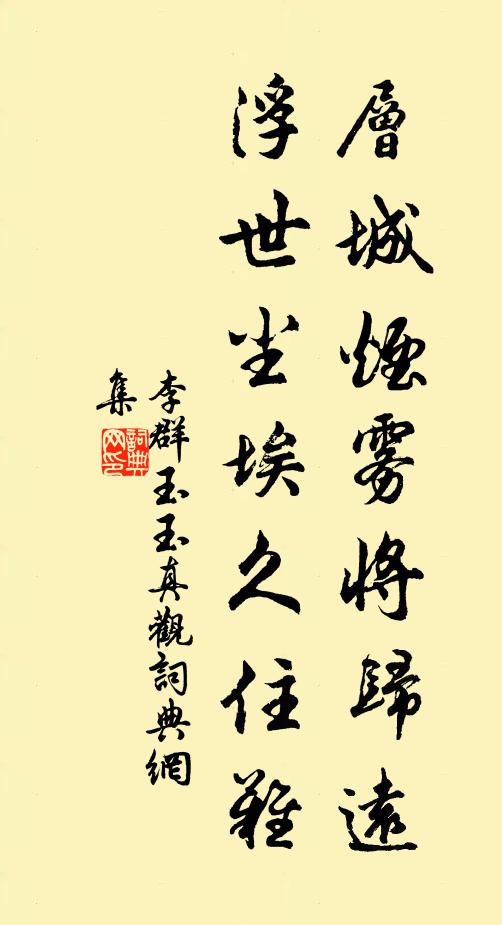 層城煙雾将歸遠
浮世尘埃久住難
李群玉玉真觀詞典網
集
詞典网印